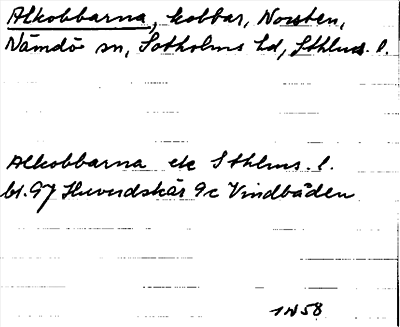 Alkobbarna, kobbar, Norsten,
Nämdö sn, Sotholms hd, Sthlms. l.
Alkobbarna ek Sthlms. l.
bl. 97 Huvudskär 9c Vindbåden
1958